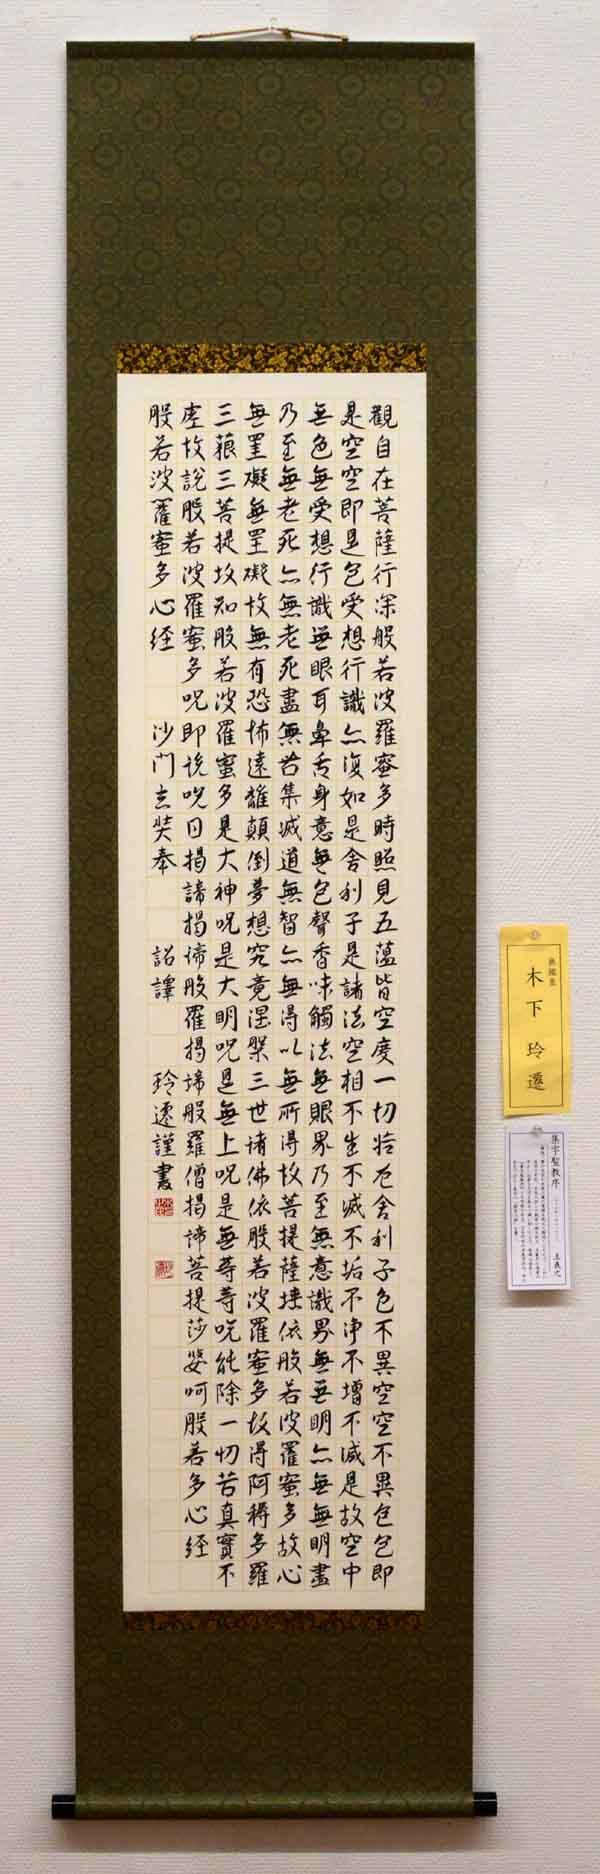 觀自在菩薩行深般若波羅蜜多時照見五蘊皆空度一切苦厄舍利子色不異空空不異色色即
是空空即是色受想行識亦復如是舍利子是諸法空相不生不滅不垢不淨不增不減是故空中
無色無受想行識無眼耳鼻舌身意無色聲香味觸法無眼界乃至無意識界無無明亦無無明盡
乃至無老死亦無老死盡無苦集滅道無智亦無得以無所得故菩提薩埵依般若波羅蜜多故心
無罣礙無罣礙故無有恐怖遠離顛倒夢想究竟涅槃三世諸佛依般若波羅蜜多故得阿耨多羅
三藐三菩提故知般若波羅蜜多是大神呪是大明呪是無上呪是無等等呪能除一切苦真實不
虛故說般若波羅蜜多呪即說呪曰揭諦揭諦般羅揭諦般羅僧揭諦菩提莎婆呵般若多心経
般若波羅蜜多心経 沙門玄奘奉 詔譯 玲遷謹書
無鑑査
木下 玲遷
集字聖教序
王羲之